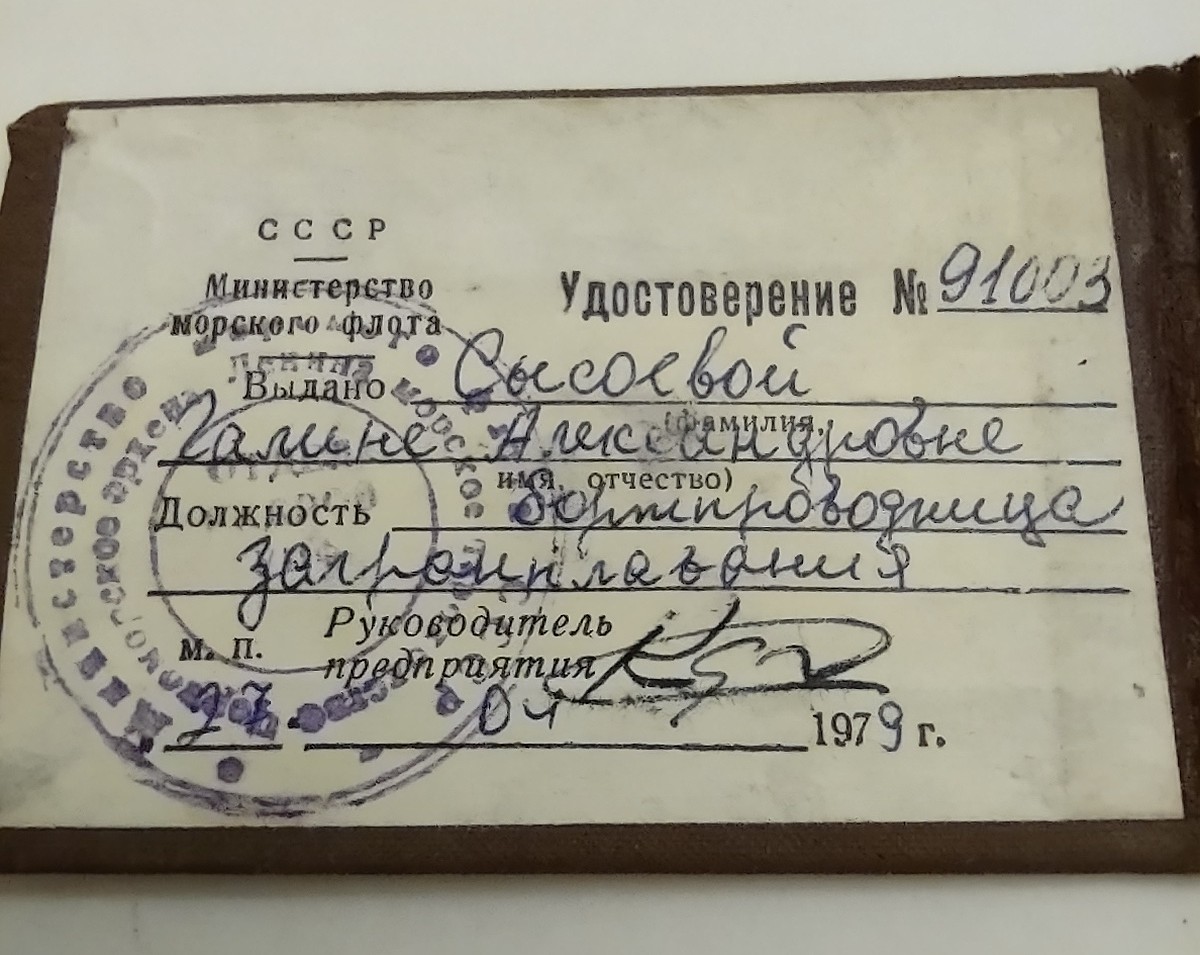 СССР
Министерство
морского флота
Удостоверение № 91003
Выдано Сысоевой
(фамилия,
Галине Александровне
имя, отчество)
Должность бортпроводница
загранплавания
М. П.
Руководитель
предприятия
27 04 1979 г.
Министерство морского флота